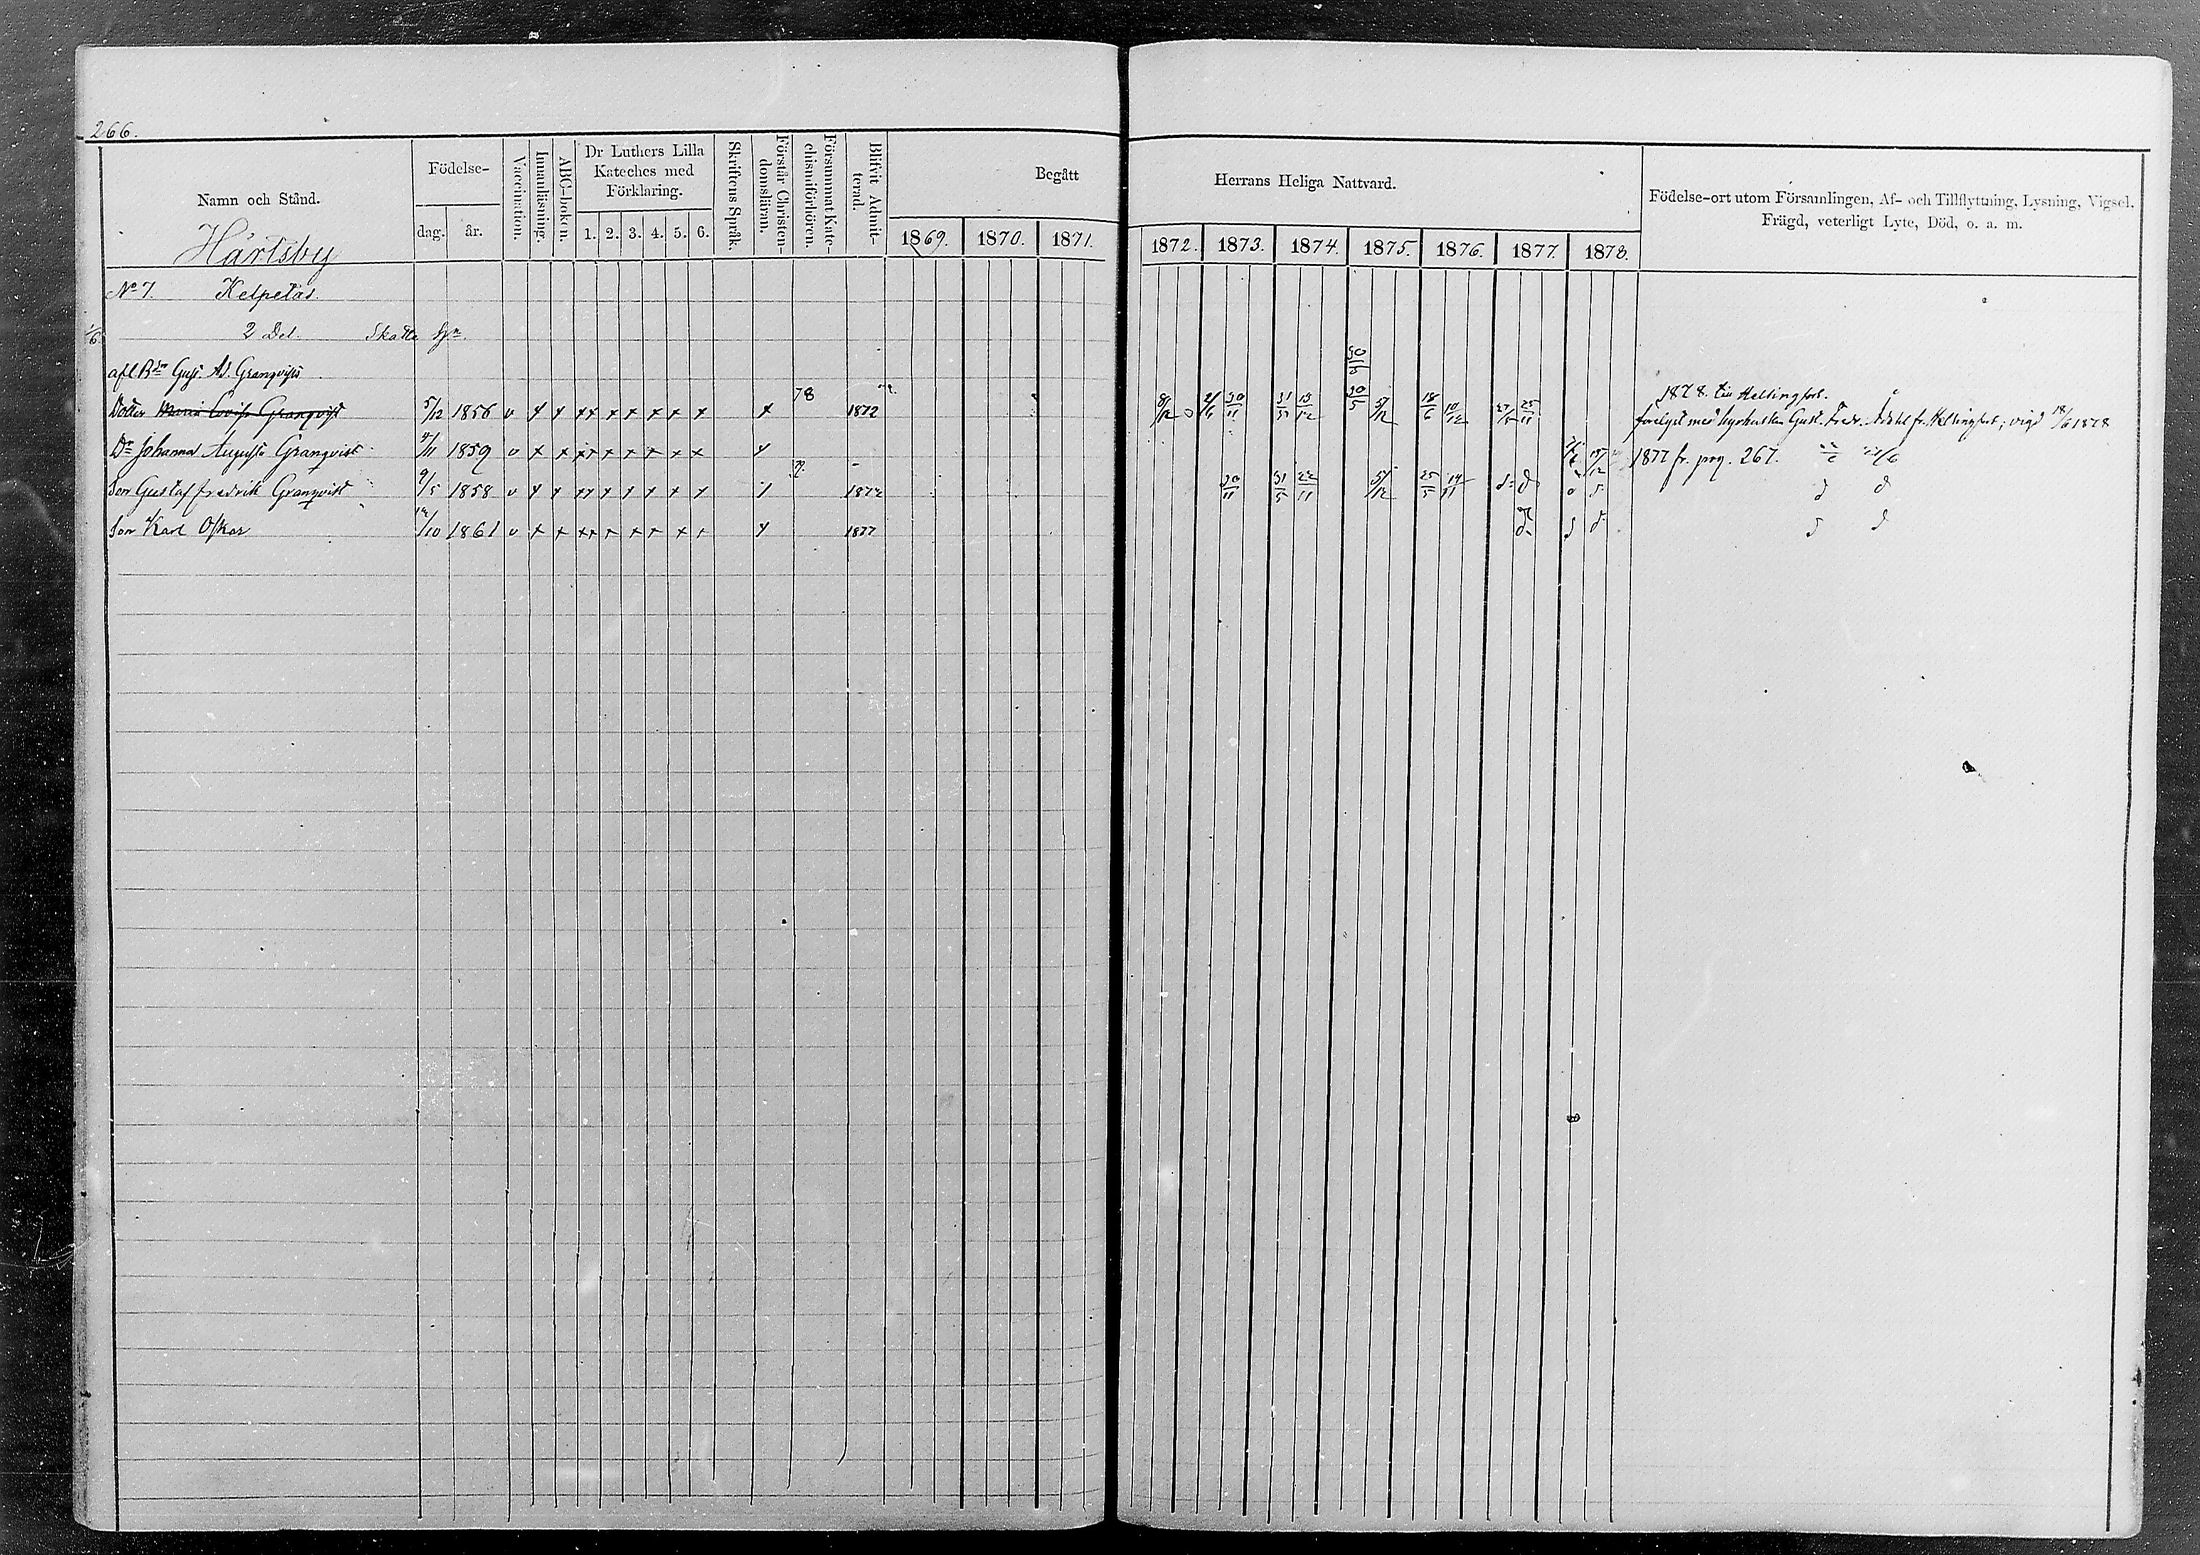 266.
Namn och Stånd.
Födelse-
dag. år.
Vaccination.
Innanläsning.
ABC-boken.
Dr Luthers Lilla Kateches med Förklaring.
1. 2. 3. 4. 5. 6.
Skriftens Språk.
Förstår Christendomsläran.
Försummat Katechismiförhören.
Blifvit Admitterad.
Begått
1869. 1870. 1871.
Herrans Heliga Nattvard.
1872. 1873. 1874. 1875. 1876. 1877. 1878.
Födelse-ort utom Församlingen, Af- och Tillflyttning, Lysning, Vigsel,
Frägd, veterligt Lyte, Död, o. a. m.
Härtsby
No 7. Kelpetas.
2 Del. Skatte
afl. Gust. Ad. Granqvists
30/5
78
1878. till Helsingfors.
Dotter Maria Lovisa Granqvist 5/12 1856 v x x xx x x x x x x 1872 8/12 30/11 31/5 13/12 30/5 5/12 18/6 10/12 25/11 Gust. Fredr. fr. Helsingfors, vigd 18/6 1878
Dr Johanna Augusta Granqvist 1859 v x x xx x x x x x x 1877 fr. pag. 267.
Son Gustaf Fredrik Granqvist 9/5 1858 v x x xx x x x x x x 1872 30/11 31/5 22/11 5/12 25/5 19/11 d d
Son Karl Oskar 1861 v x x xx x x x x x x 1877 d d d